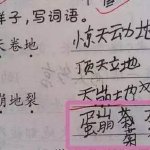 样子，写词语。
天卷地 惊天动地
顶天立地
崩地裂 天崩地
蛋崩